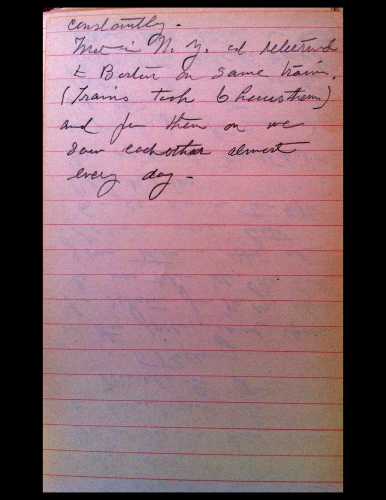 constantly.
Met in N. Y. & returned
to Boston on same train.
(Trains took 6 hours then)
and from then on we
saw each other almost
every day.